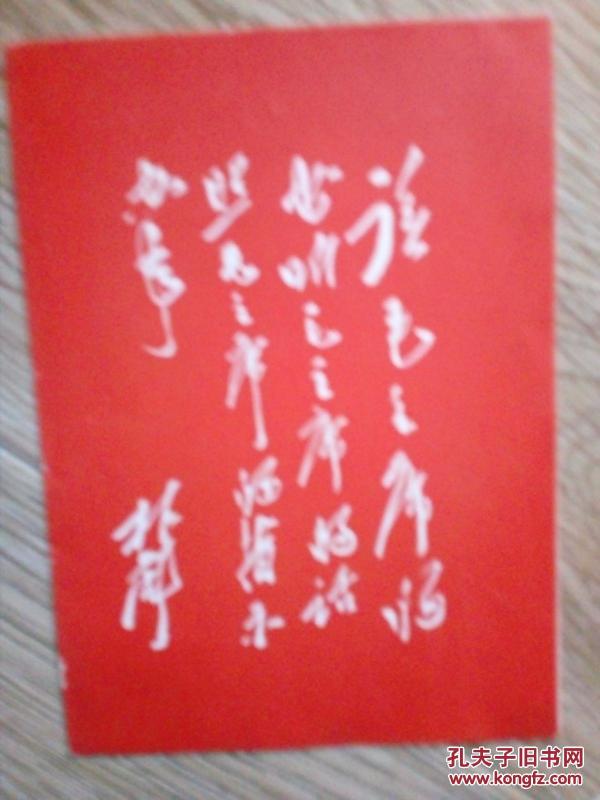 读毛主席的
书 听毛主席的话
照毛主席的指示
办事
林彪
孔夫子旧书网
www.kongfz.com